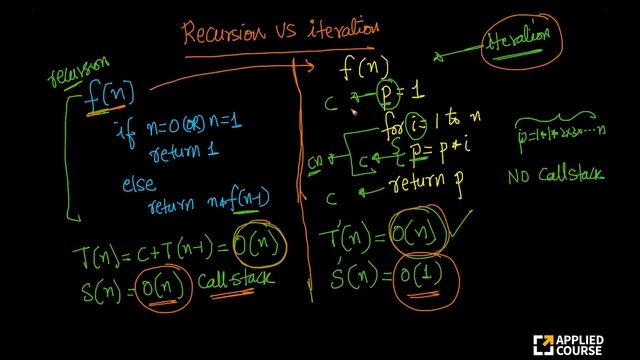 Recursion vs iteration
recursion
f(n)
if n=0 (OR) n=1
return 1
else
return n*f(n-1)
T(n) = C+T(n-1) = O(n)
S(n) = O(n) call-stack
iteration
f(n)
C p = 1
for i=1 to n
cn C p = p*i
C return p
T'(n) = O(n) ✓
S'(n) = O(1)
p=1*1*2*3*...n
NO Callstack
APPLIED
COURSE